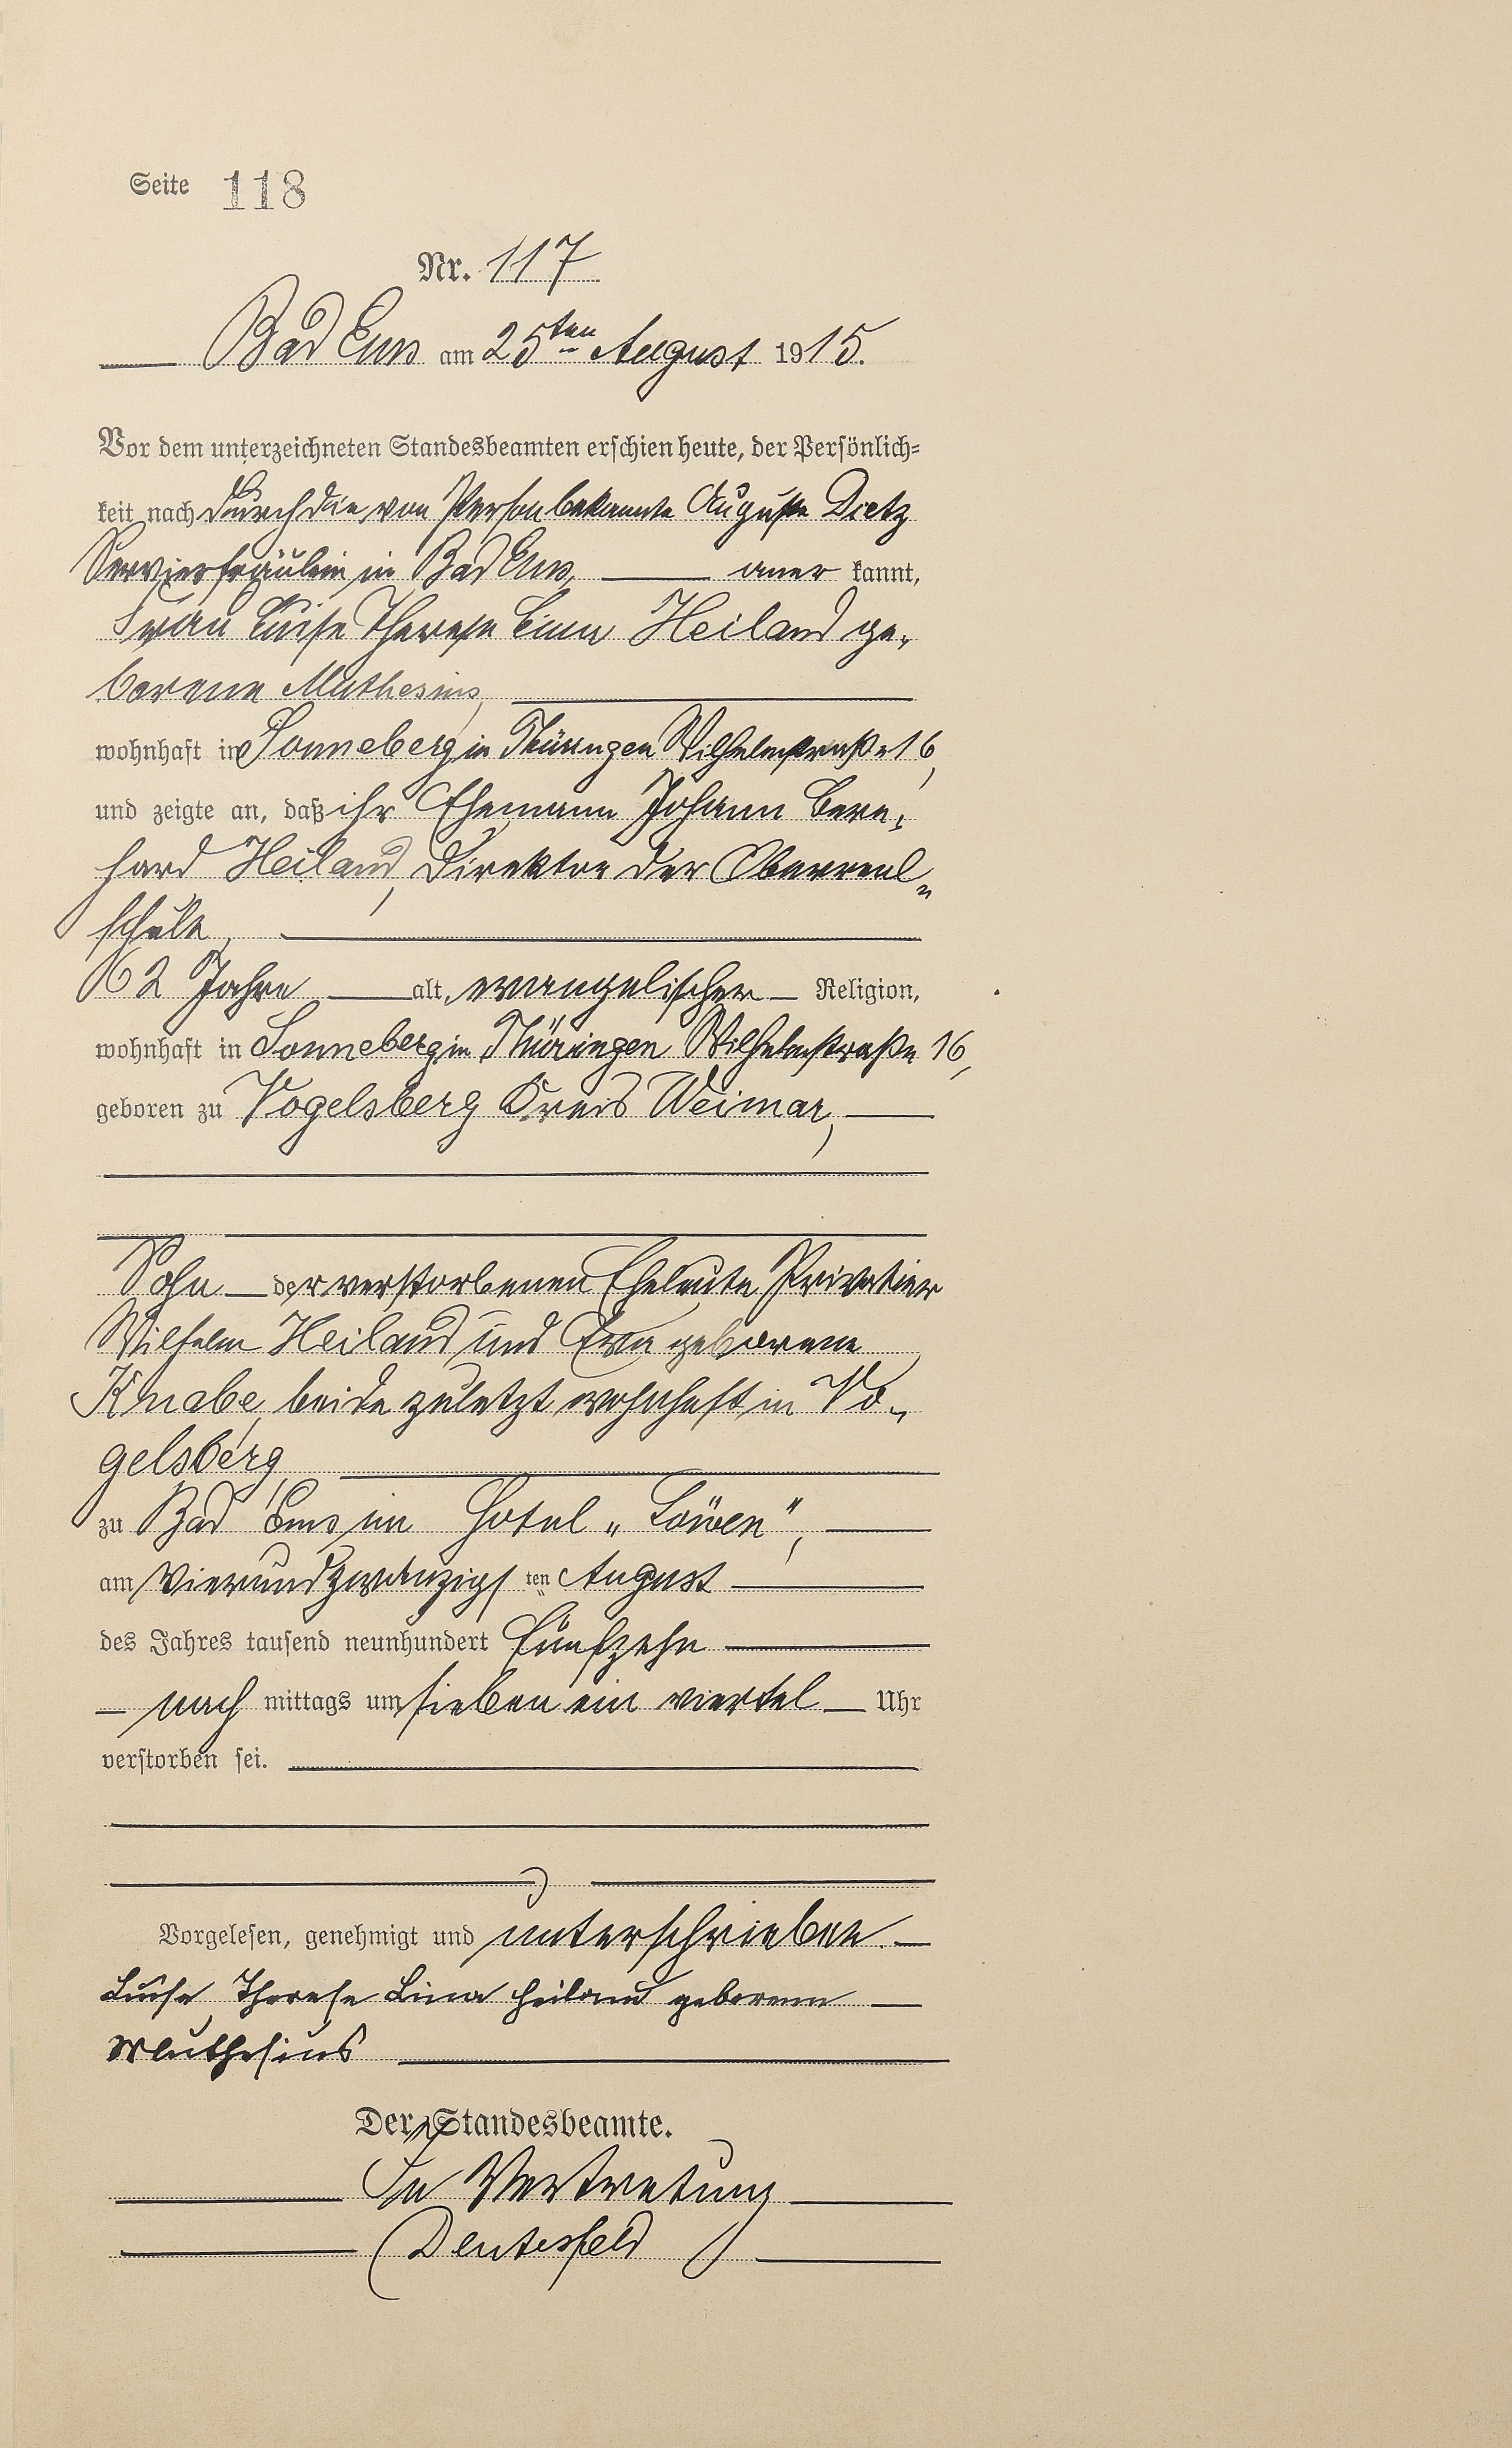 Seite 118
Nr. 117
Bad Ems am 25ten August 1915.
Vor dem unterzeichneten Standesbeamten erschien heute, der Persönlich-
keit nach durch die von Person bekannte Auguste Dietz
Servierfräulein in Bad Ems, aner kannt,
Frau Luise Therese Lina Heiland ge-
borene Muthesius,
wohnhaft in Sonneberg in Thüringen Wilhelmstraße 16,
und zeigte an, daß ihr Ehemann Johann Bern-
hard Heiland, Direktor der Oberreal-
schule,
62 Jahre alt, evangelischer Religion,
wohnhaft in Sonneberg in Thüringen Wilhelmstraße 16,
geboren zu Vogelsberg Kreis Weimar,
Sohn der verstorbenen Eheleute Privatier
Wilhelm Heiland und Eva geborene
Knabe, beide zuletzt wohnhaft in Vo-
gelsberg,
zu Bad Ems im Hotel „Löwen",
am vierundzwanzigsten August
des Jahres tausend neunhundert fünfzehn
nach mittags um sieben ein viertel Uhr
verstorben sei.
Vorgelesen, genehmigt und unterschrieben.
Luise Therese Lina Heiland geborene
Muthesius
Der Standesbeamte.
In Vertretung